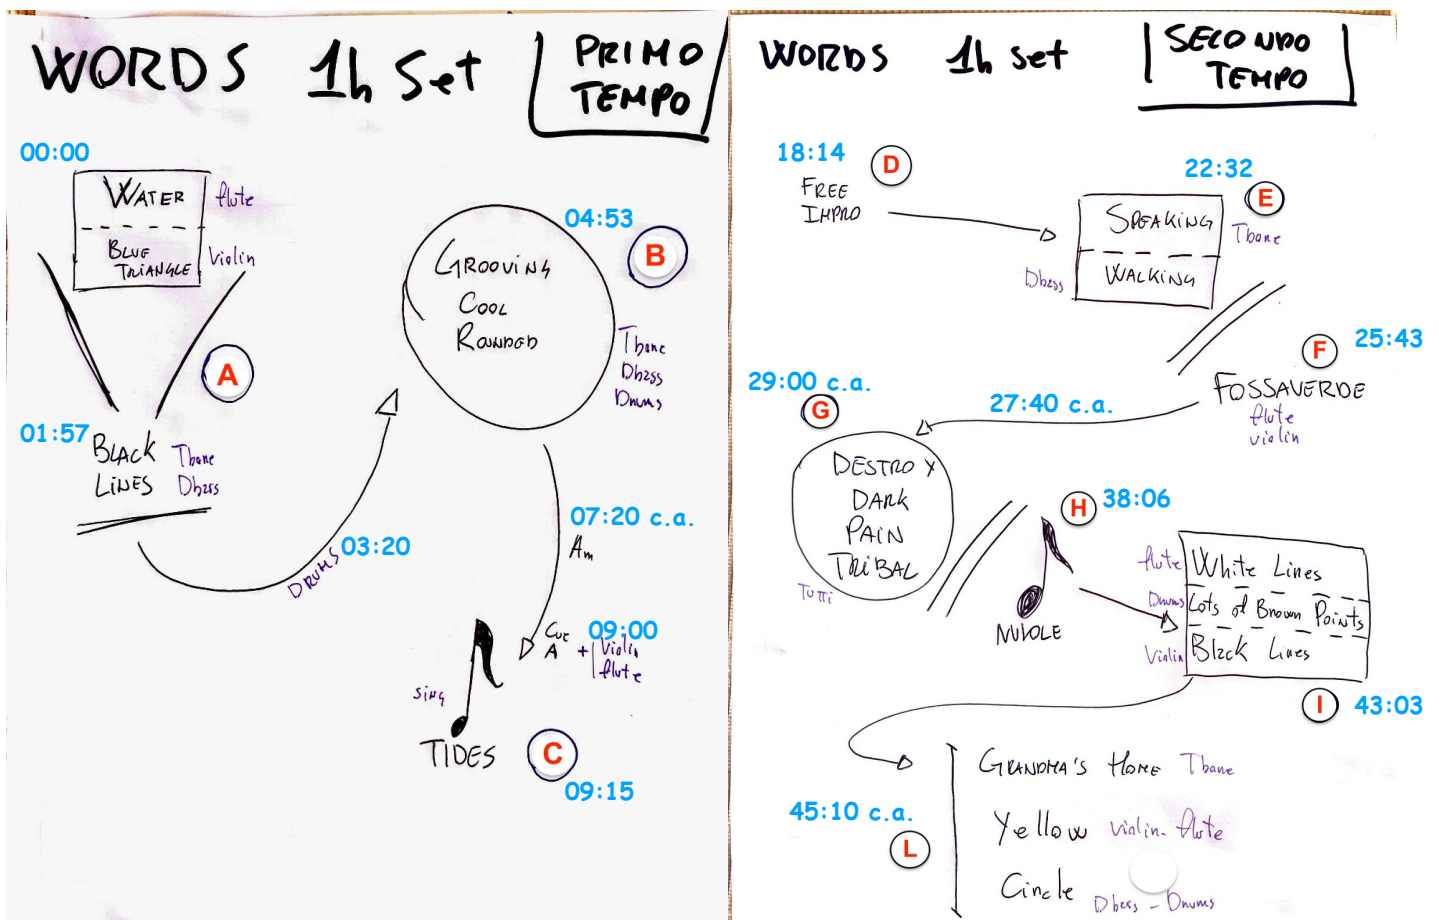 WORDS 1h Set
PRIMO
TEMPO
00:00
WATER flute
BLUE
TRIANGLE Violin
A
01:57
BLACK Tbone
LINES Dbass
DRUMS 03:20
04:53
B
GROOVING
COOL
ROUNDED
Tbone
Dbass
Drums
07:20 c.a.
Am
Cue 09:00
A + Violin
flute
sing
TIDES
C
09:15
WORDS 1h set
SECONDO
TEMPO
18:14
D
FREE
IMPRO
22:32
E
SPEAKING Tbone
Dbass WALKING
F 25:43
FOSSAVERDE
flute
violin
27:40 c.a.
29:00 c.a.
G
DESTROY
DARK
PAIN
TRIBAL
TUTTI
H 38:06
NUVOLE
flute White Lines
Drums Lots of Brown Points
Violin Black Lines
I 43:03
45:10 c.a.
L
GRANDMA'S HOME Tbone
Yellow violin-flute
Circle Dbass - Drums